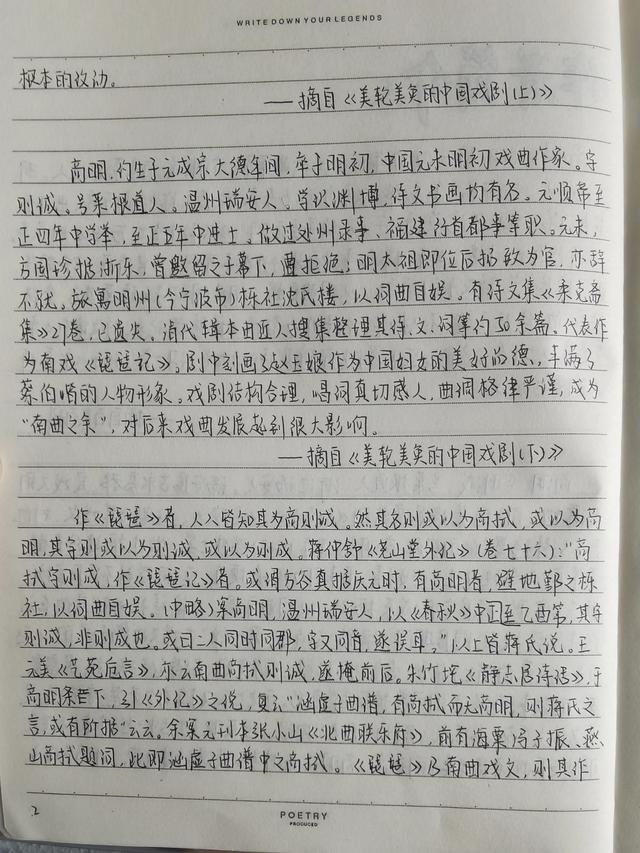 WRITE DOWN YOUR LEGENDS
根本的改动。
——摘自《美轮美奂的中国戏剧(上)》
高明,约生于元成宗大德年间,卒于明初,中国元末明初戏曲作家。字
则诚。号菜根道人。温州瑞安人。学识渊博,诗文书画均有名。元顺帝至
正四年中学举,至正五年中进士。做过处州录事、福建行省都事等职。元末,
方国珍据浙东,曾邀留之于幕下,遭拒绝;明太祖即位后招致为官,亦辞
不就。旅寓明州(今宁波市)栎社沈氏楼,以词曲自娱。有诗文集《柔克斋
集》27卷,已遗失。清代辑本由匠人搜集整理其诗、文、词等约50余篇。代表作
为南戏《琵琶记》。剧中刻画了赵五娘作为中国妇女的美好品德,丰满了
蔡伯喈的人物形象。戏剧结构合理,唱词真切感人,曲调格律严谨,成为
“南曲之宗”,对后来戏曲发展起到很大影响。
——摘自《美轮美奂的中国戏剧(下)》
作《琵琶》者,人人皆知其为高则诚。然其名则或以为高拭,或以为高
明,其字则或以为则诚,或以为则成。蒋仲舒《尧山堂外记》(卷七十六):“高
拭字则成,作《琵琶记》者。或谓方谷真据庆元时,有高明者,避地鄞之栎
社,以词曲自娱。(中略)案高明,温州瑞安人,以《春秋》中至正乙酉第,其字
则诚,非则成也。或曰二人同时同郡,字又同音,遂误耳。”以上皆蒋氏说。王
元美《艺苑卮言》,亦云南曲高拭则诚,遂掩前后。朱竹垞《静志居诗话》,于
高明条下,引《外记》之说,复云“涵虚子曲谱,有高拭而无高明,则蒋氏之
言,或有所据”云云。余案元刊本张小山《北曲联乐府》,前有海粟冯子振、燕
山高拭题词,此即涵虚子曲谱中之高拭。《琵琶》乃南曲戏文,则其作
2
POETRY
PRODUCED